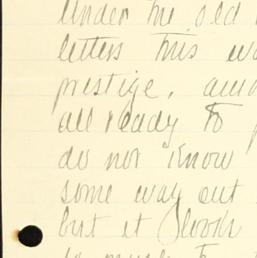 Under the old
letters this wa
prestige, and
all ready to
do not know
some way out
but it looks
so much to